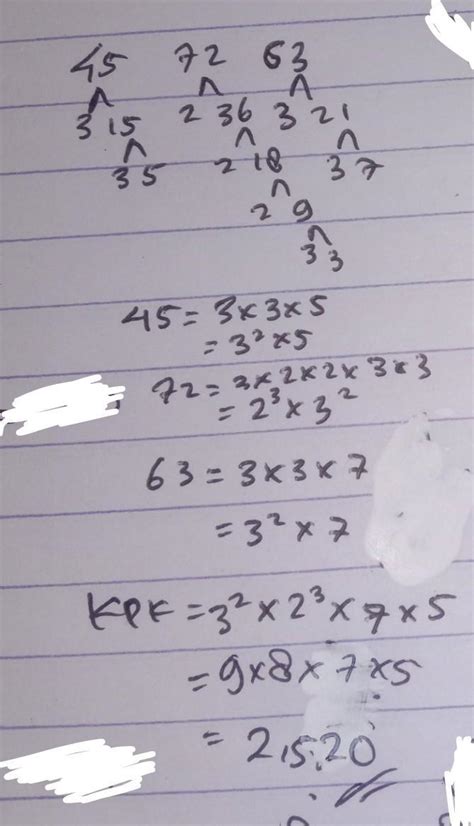 45 72 63
3 15 2 36 3 21
3 5 2 18 3 7
2 9
3 3
45 = 3 x 3 x 5
= 3² x 5
72 = 3 x 2 x 2 x 3 x 3
= 2³ x 3²
63 = 3 x 3 x 7
= 3² x 7
KPK = 3² x 2³ x 7 x 5
= 9 x 8 x 7 x 5
= 2,520